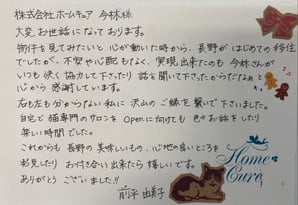 株式会社ホームキュア 今林様
大変お世話になっております。
物件を見てみたいと心が動いた時から、長野がはじめての移住
でしたが、不安や心配もなく、実現出来たのも今林さんが
いつも快く協力して下さったり話を聞いて下さったからだなぁと
心から感謝しています。
右も左も分からない私に沢山のご縁を繋いで下さいました。
自宅で猫専門のサロンをOpenに向けても色々お話をしたり
楽しい時間でした。
これからも長野の美味しいもの、心地の良いところを
発見したりお付き合い出来たら嬉しいです。
ありがとうございました!!
前平 由美子
Home Cure